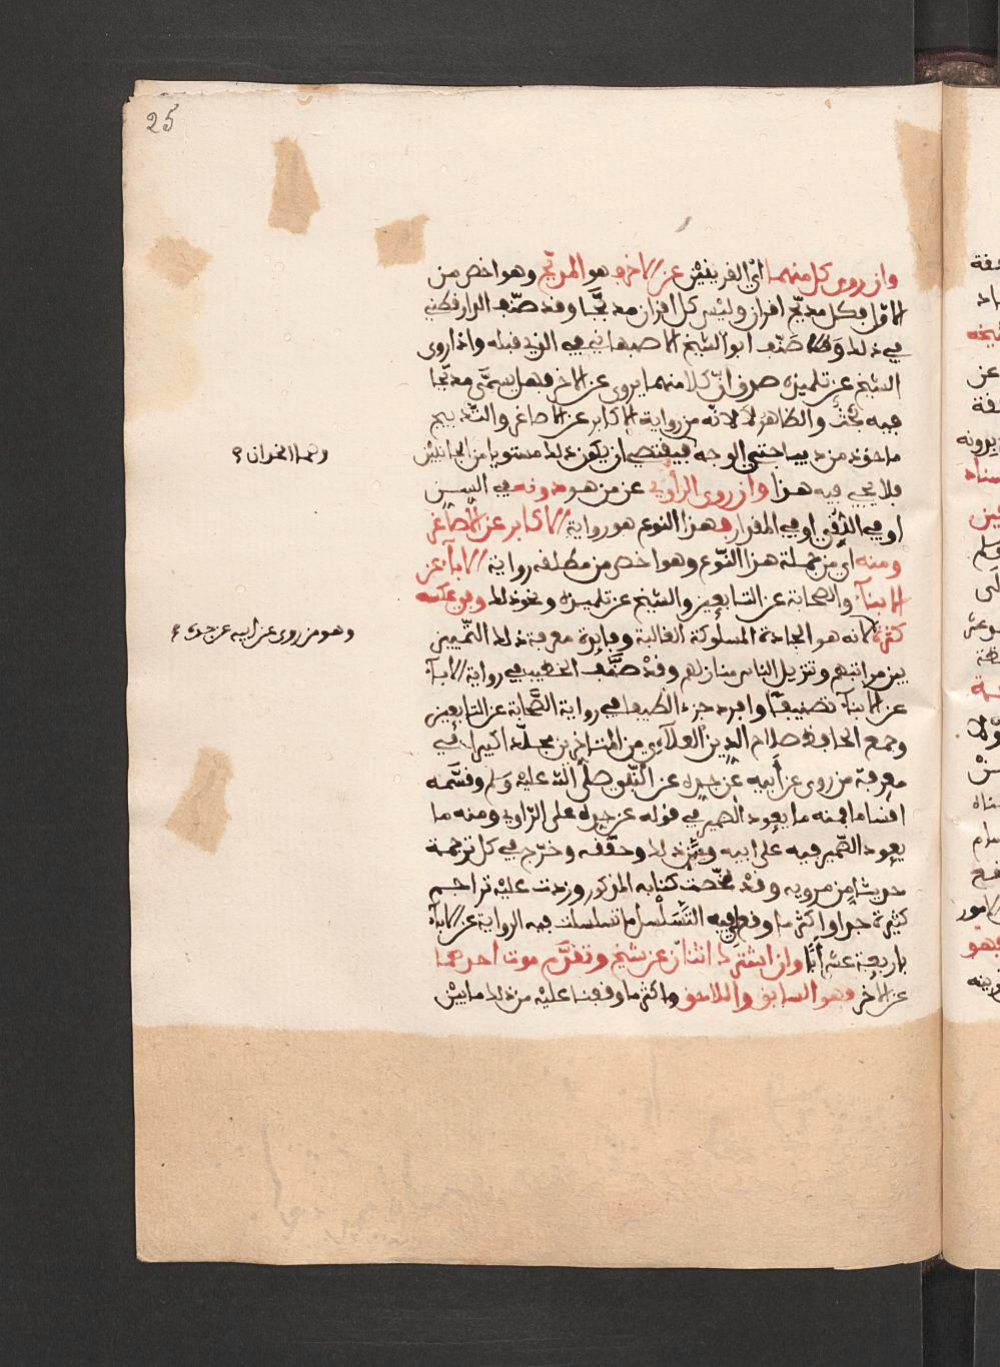 25
وان روى كل منهما اي القرينين عن الاخر فهو المدبج وهو اخص من
الاول فكل مدبج اقران وليس كل اقران مدبجا وقد صنف الدارقطني
في ذلك وصنف ابو الشيخ الاصبهاني في الذي قبله واذا روى
الشيخ عن تلميذه صدق ان كلا منهما يروى عن الاخر فهل يسمى مدبجا
فيه بحث والظاهر لا لانه من رواية الاكابر عن الاصاغر والتدبيج
ماخوذ من ديباجتي الوجه فيقتضي ان يكون ذلك مستويا من الجانبين
وهما الخدان
فلا يجي فيه هذا وان روى الراوي عن من هو دونه في السن
او في اللقي او في المقدار فهذا النوع هو رواية الاكابر عن الاصاغر
ومنه اي من جملة هذا النوع وهو اخص من مطلقه رواية الاباء عن
الابناء والصحابة عن التابعين والشيخ عن تلميذه ونحو ذلك وفي عكسه
كثرة لانه هو الجادة المسلوكة الغالبة وفايدة معرفة ذلك التمييز
وهو من روى عن ابيه عن جده
بين مراتبهم وتنزيل الناس منازلهم وقد صنف الخطيب في رواية الاباء
عن الابناء تصنيفا وافرد جزءا لطيفا في رواية الصحابة عن التابعين
وجمع الحافظ صلاح الدين العلاءي من المتاخرين مجلدا كبيرا في
معرفة من روى عن ابيه عن جده عن النبي صلى الله عليه وسلم وقسمه
اقساما فمنه ما يعود الضمير في قوله عن جده على الراوي ومنه ما
يعود الضمير فيه على ابيه وبين ذلك وحققه وخرج في كل ترجمة
حديثا من مرويه وقد لخصت كتابه المذكور وزدت عليه تراجم
كثيرة جدا واكثر ما وقع فيه التسلسل ما تسلسلت فيه الرواية عن الاباء
باربعة عشر ابا وان اشترك اثنان عن شيخ وتقدم موت احدهما
عن الاخر فهو السابق واللاحق واكثر ما وقفنا عليه من ذلك ما بين